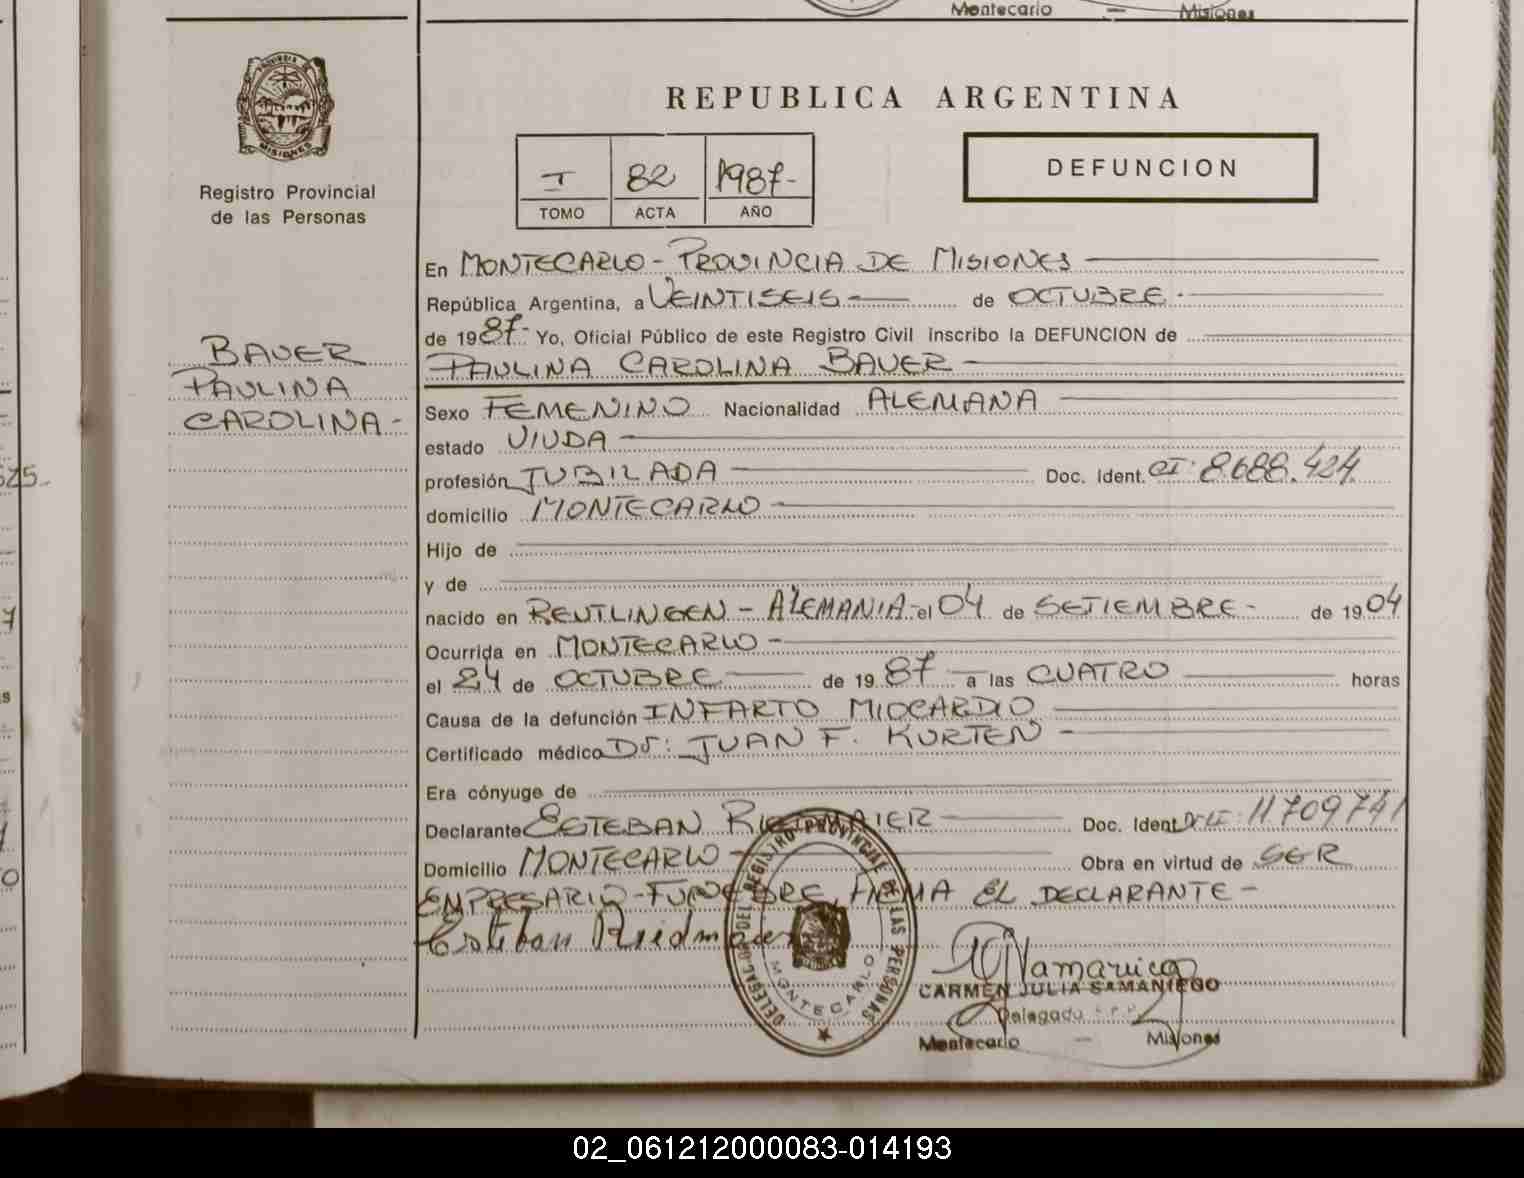 Montecarlo — Misiones
PROVINCIA DE
MISIONES
Registro Provincial
de las Personas
REPUBLICA ARGENTINA
I 82 1987-
TOMO ACTA AÑO
DEFUNCION
En MONTECARLO - PROVINCIA DE MISIONES
República Argentina, a VEINTISEIS de OCTUBRE.
de 1987- Yo, Oficial Público de este Registro Civil inscribo la DEFUNCION de
PAULINA CAROLINA BAUER
BAUER
PAULINA
CAROLINA -
Sexo FEMENINO Nacionalidad ALEMANA
estado VIUDA
profesión JUBILADA Doc. Ident. CI: 8.688.424.
domicilio MONTECARLO
Hijo de
y de
nacido en REUTLINGEN - ALEMANIA- el 04 de SETIEMBRE - de 1904
Ocurrida en MONTECARLO -
el 24 de OCTUBRE de 1987 a las CUATRO horas
Causa de la defunción INFARTO MIOCARDIO
Certificado médico Dr: JUAN F. KURTEN -
Era cónyuge de
Declarante ESTEBAN RIEDMAIER Doc. Ident DNI: 11709741
Domicilio MONTECARLO - Obra en virtud de SER
EMPRESARIO-FUNEBRE, FIRMA EL DECLARANTE -
Esteban Riedmaier
DELEGAC. DEL REGISTRO PROVINCIAL DE LAS PERSONAS
MONTECARLO
CARMEN JULIA SAMANIEGO
Delegada
Montecarlo — Misiones
525.
7
s
02_061212000083-014193